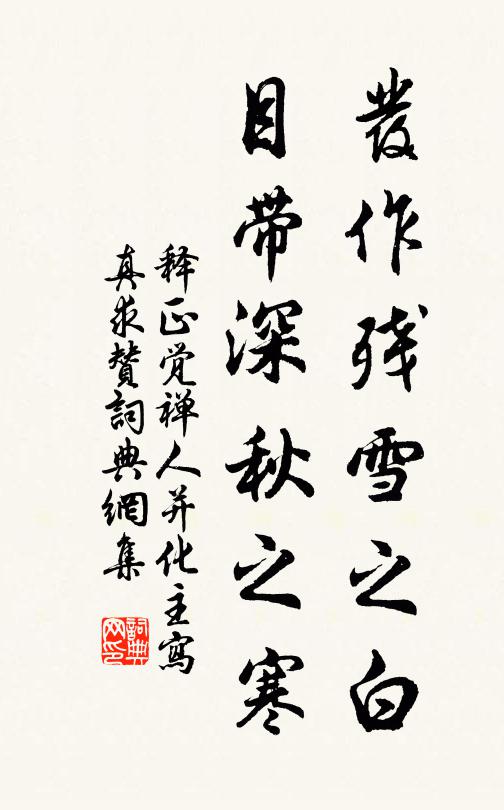 發作残雪之白
目带深秋之寒
释正觉禅人并化主寫
真求贊詞典網集
詞典网印